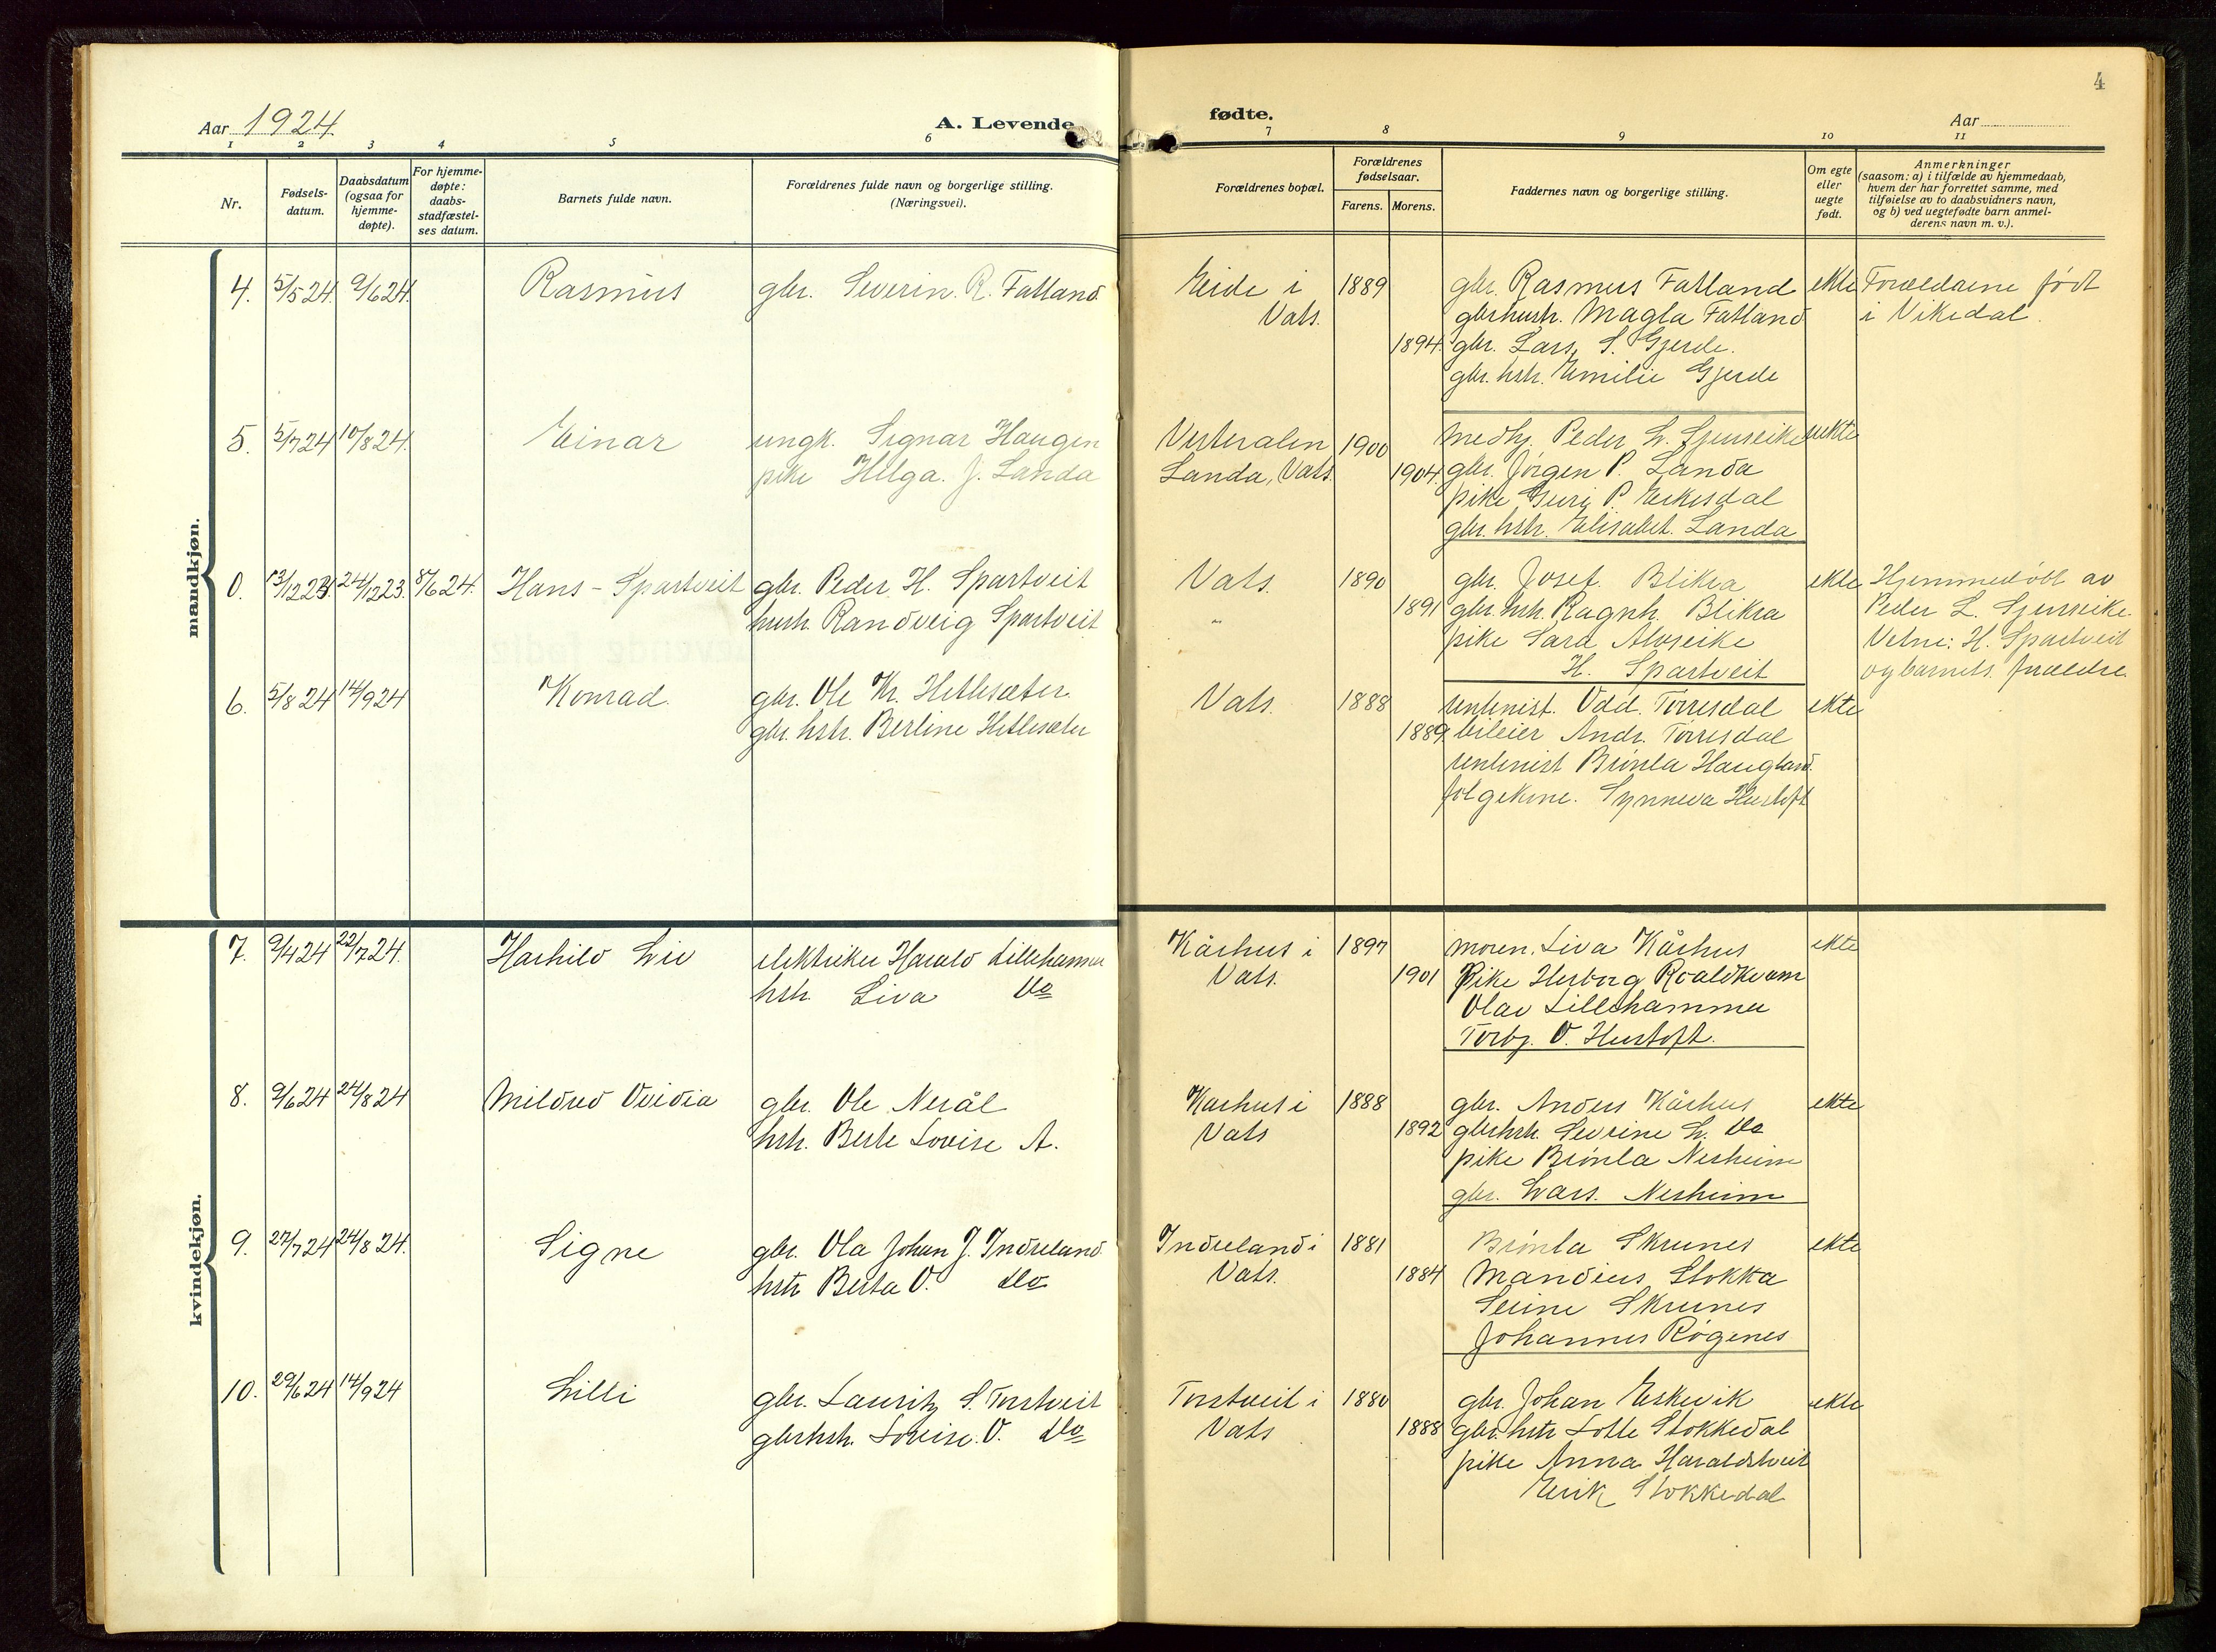 4
Aar 1924.
A. Levende
fødte.
Aar
1 2 3 4 5 6 7 8 9 10 11
Nr.
Fødsels-
datum.
Daabsdatum
(ogsaa for
hjemme-
døpte).
For hjemme-
døpte:
daabs-
stadfæstel-
ses datum.
Barnets fulde navn.
Forældrenes fulde navn og borgerlige stilling.
(Næringsvei).
Forældrenes bopæl.
Forældrenes
fødselsaar.
Farens. Morens.
Faddernes navn og borgerlige stilling.
Om egte
eller
uegte
født.
Anmerkninger
(saasom: a) i tilfælde av hjemmedaab,
hvem der har forrettet samme, med
tilføielse av to daabsvidners navn,
og b) ved uegtefødte barn anmel-
derens navn m. v.).
mandkjøn.
4. 5/5 24 9/6 24. Rasmus gbr. Severin. R. Fatland. Eide i 1889 gbr. Rasmus Fatland ekte Forældrene født
Vats. gbrhustr. Magla Fatland i Vikedal.
1894. gbr. Lars S. Gjerde.
gbr. hstr. Emilie Gjerde
5. 5/7 24 10/8 24. Einar ungk. Signar Haugen 1900 Peder L. uekte
pike Helga. J. Landa Landa, Vats. 1904. gbr. Jørgen P. Landa
pike P. Eikesdal
gbr. hstr. Elisabet. Landa
0. 13/12 23. 24/12 23. 8/6 24. Hans - Spartveit gbr. Peder H. Spartveit Vats. 1890 gbr. Josef. Blikra ekte Hjemmedøbt av
hustr. Randveig Spartveit " 1891 gbr. hstr. Ragnh. Blikra Peder L.
pike Sara Alvseike Vitne: H. Spartveit
H. Spartveit og barnets forældre
6. 5/8 24 14/9 24 Konrad. gbr. Ole Kr. Hetlesæter. Vats. 1888 Odd. Torresdal ekte
gbr. hstr. Berline Hetlesæter 1889 Andr. Torresdal
Brønla Haugland.
Synneva Hustoft
kvindekjøn.
7. 9/4 24 22/7 24. Harhild Liv elektriker Harald Lillehammer Kårhus i 1897 moren. Liva Kårhus ekte
hstr. Liva Do Vats. 1901 Pike Herborg Roaldkvam
Olav Lillehammer
Torbj. O. Hustoft.
8. 9/6 24 24/8 24 Mildred Ovidia gbr. Ole Nerål Kårhus i 1888 gbr. Anders Kårhus ekte
hstr. Berte Lovise A. Vats 1892 gbrhstr. Severine L. Do
pike Brønla Nesheim
gbr. Lars. Nesheim
9. 27/7 24 24/8 24. Signe gbr. Ola Johan J. Indreland Indreland i 1881 Brønla Skrunes ekte
hstr Berta O. Do Vats. 1884 Mandius Stokka
Serine Skrunes
Johannes Røgenes
10. 29/6 24 14/9 24 Lilli gbr. Lauritz S. Torstveit Torstveit i 1880 gbr. Johan Eskevik ekte
gbrhstr. Lovise. O. Do Vats 1888 gbr. hstr Lotte Stokkedal
pike Anna Haraldstveit
Eirik Stokkedal